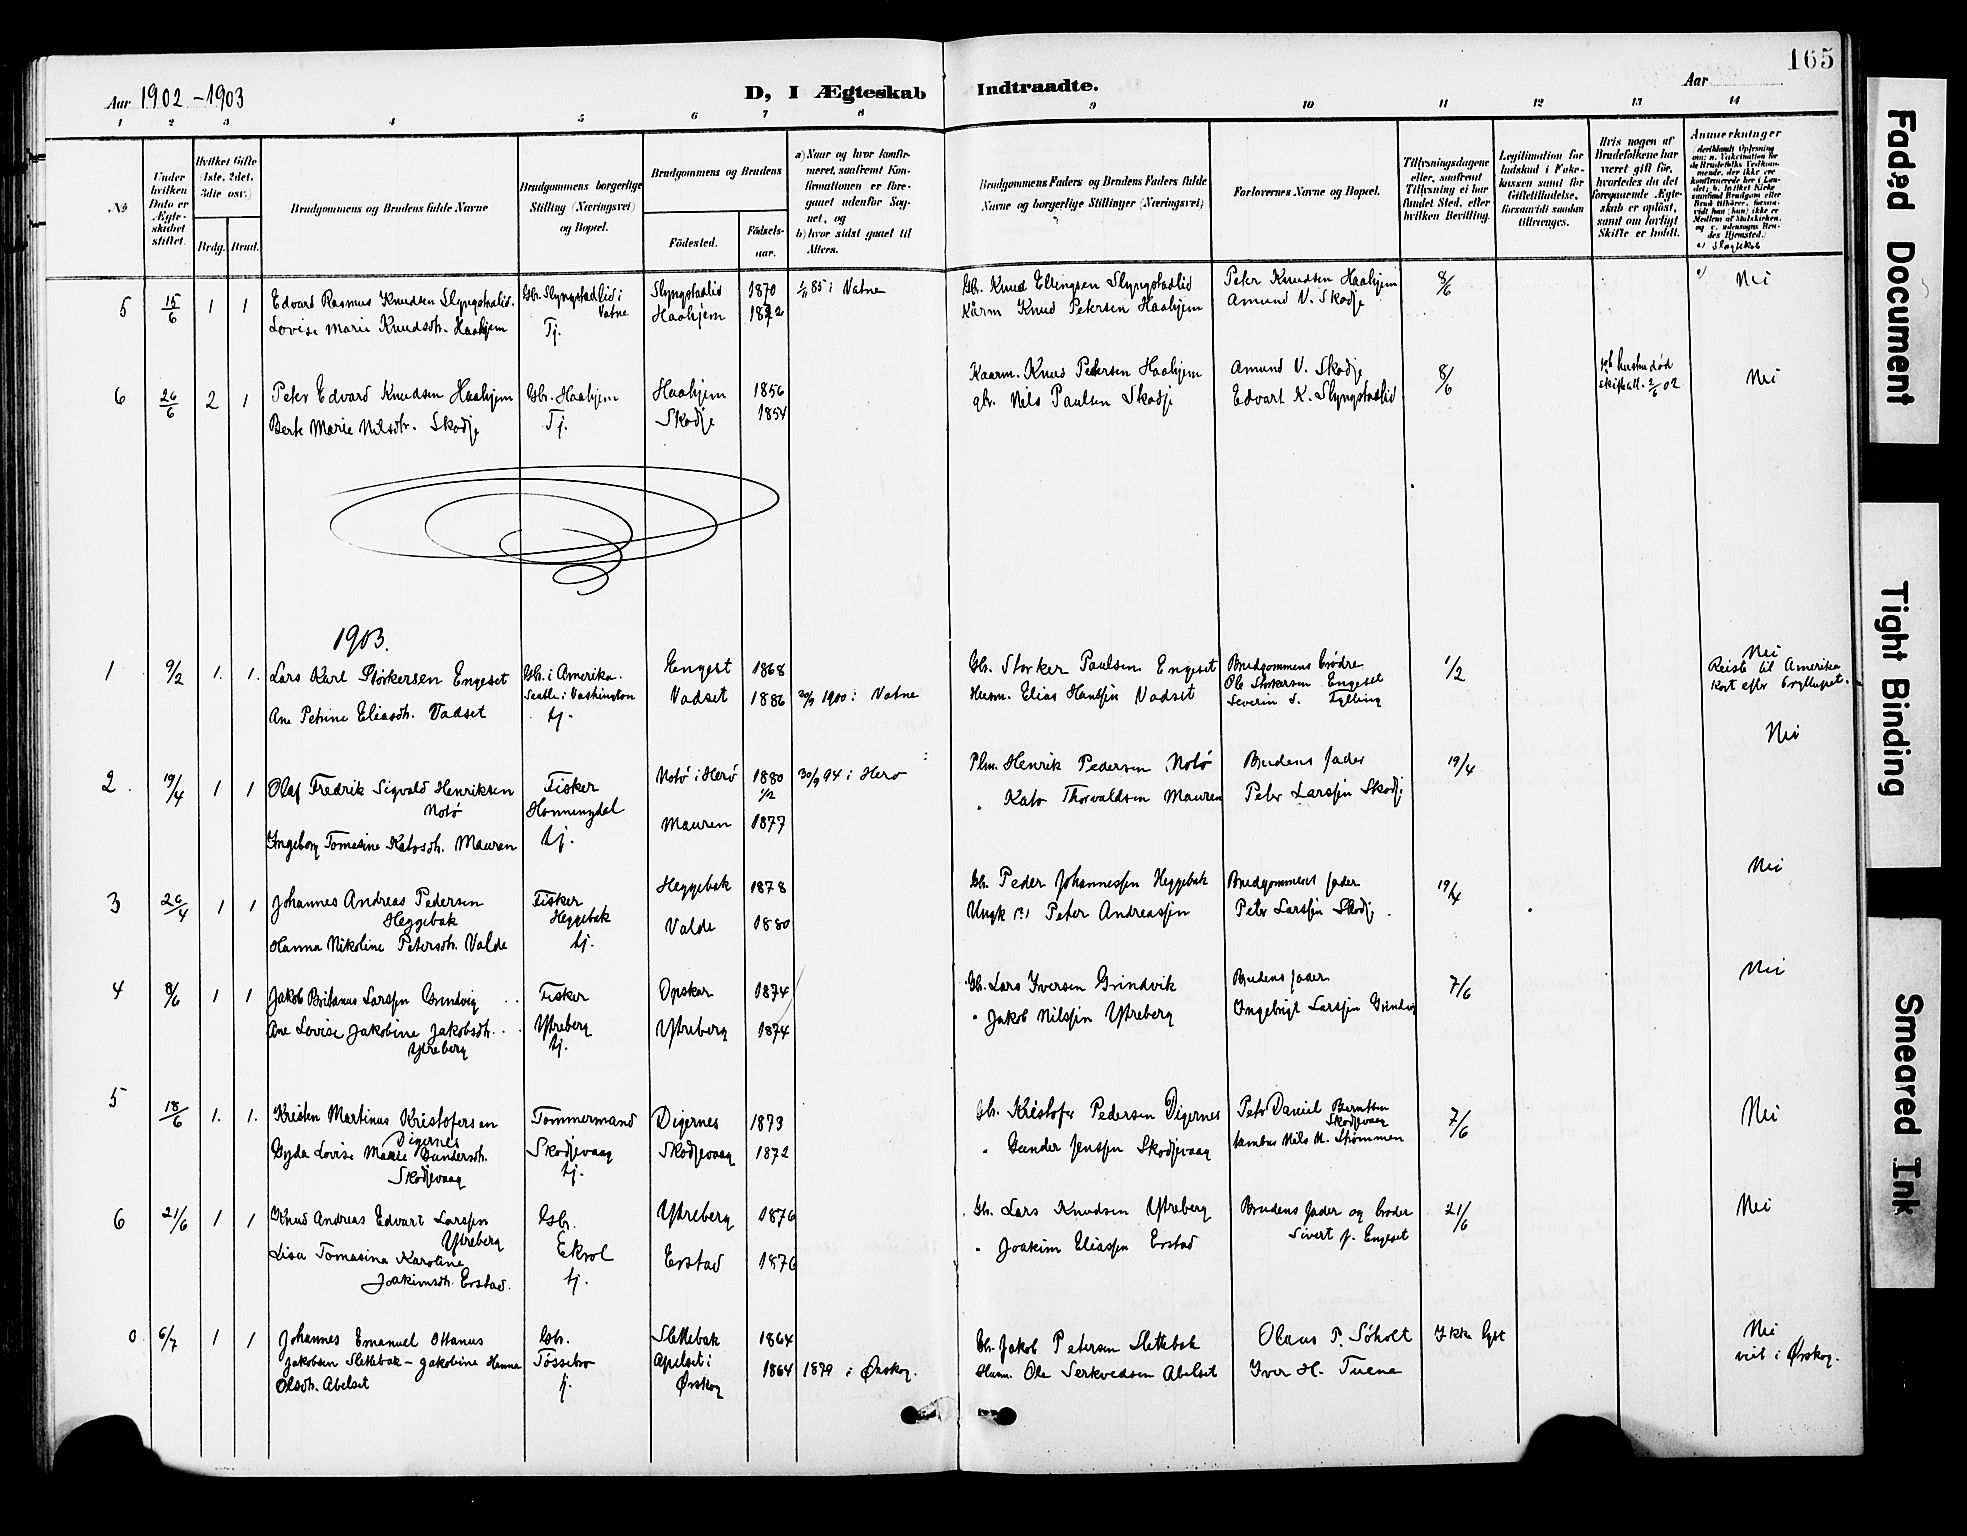 165
Aar 1902 - 1903
D, I Ægteskab Indtraadte.
Aar
1 2 3 4 5 6 7 8 9 10 11 12 13 14
No
Under hvilken Dato er Ægteskabet stiftet.
Hvilket Gifte (1ste, 2det, 3die osv.)
Brdg. Brud.
Brudgommens og Brudens fulde Navne
Brudgommens borgerlige Stilling (Næringsvei) og Bopæl.
Brudgommens og Brudens
Födested.
Födselsaar.
a) Naar og hvor konfirmeret, saafremt Konfirmationen er foregaaet udenfor Sognet, og
b) hvor sidst gaaet til Alters.
Brudgommens Faders og Brudens Faders fulde Navne og borgerlige Stillinger (Næringsvei)
Forlovernes Navne og Bopæl.
Tillysningsdagene eller, saafremt Tillysning ei har fundet Sted, efter hvilken Bevilling.
Legitimation for Indskud i Enkekassen samt for Giftetilladelse, forsaavidt saadan tiltrænges.
Hvis nogen af Brudefolkene har været gift för, hvorledes da det foregaaende Ægteskab er oplöst, samt om lovligt Skifte er holdt.
Anmerkninger
5 15/6 1 1 Edvard Rasmus Knudsen Slyngstadlid. Gbr. Slyngstadlid i Vatne Slyngstadlid 1870 85 i Vatne Gb. Knud Ellingsen Slyngstadlid Peter Knudsen Haahjem 8/6 Nei
Lovise Marie Knudsdtr. Haahjem Tj. Haahjem 1872 Kårm Knud Petersen Haahjem Amund V. Skodje
6 26/6 2 1 Peter Edvard Knudsen Haahjem Gbr. Haahjem Haahjem 1856 Kaarm. Knud Petersen Haahjem Amund V. Skodje 8/6 hustru död 02 Nei
Berte Marie Nilsdtr. Skodje Tj. Skodje 1854 gbr. Nils Paulsen Skodje Edvart K. Slyngstadlid
1903.
1 9/2 1. 1. Lars Karl Störkersen Engeset Gbr. i Amerika. Engest 1868 Gb. Storker Paulsen Engeset Brudgommens brødre 1/2 Nei
Seatle i Vashington Ole Storkersen Engeset Reiste til Amerika
Ane Petrine Eliasdtr. Vadset tj. Vadset 1886 30/9 1900 i Vatne Husm. Elias Hansen Vadset Severin S. Fylling kort efter bryllupet.
2. 19/4 1 1 Olaf Fredrik Sigvald Henriksen Notø Fisker Honningdal Notø i Herø 1880 1/2 30/9 94 i Herø Plm. Henrik Pedersen Notø Brudens fader 19/4 Nei
Ingeborg Tomasine Katosdtr. Mauren tj. Mauren 1877 " Kato Thorvaldsen Mauren Peter Larssen Skodje
3 26/4 1 1 Johannes Andreas Pedersen Heggebak Fisker Heggebak Heggebak 1878 Gb. Peder Johannessen Heggebak Brudgommens fader 19/4 Nei
Hanna Nikoline Petersdtr. Valde tj. Valde 1880 Ungk (?) Peter Andreassen Peter Larssen Skodje.
4 8/6 1 1 Jakob Britanus Larssen Grindvig Fisker Opskar 1874 Gb. Lars Iversen Grindvik Brudens fader 7/6 Nei
Ane Lovise Jakobine Jakobsdtr. Ytreberg Ytreberg tj. Ytreberg 1874 " Jakob Nilssen Ytreberg Ingebrigt Larssen Grindvig
5 18/6 1. 1. Kristen Martinus Kristofersen Digernes Tømmermand Digernes 1873 Gb. Kristofer Pedersen Digernes Petr Daniel Berntsen Skodjevaag 7/6 Nei
Gyda Lovise Marie Gundersdtr. Skodjevaag Skodjevaag tj. Skodjevaag 1872 " Gunder Jenssen Skodjevaag Nils M. Strømmen
6 21/6 1 1 Knud Andreas Edvart Larssen Ytreberg Gbr. Ekrol Ytreberg 1876 Gb. Lars Knudsen Ytreberg Brudens fader og broder 21/6 Nei
Lisa Tomasina Karoline Joakimsdtr. Erstad. tj. Erstad 1876 " Joakim Eliassen Erstad Sivert J. Engeset
0 6/7 1 1 Johannes Emanuel Ottanus Gbr. Slettebak 1864 Gb. Jakob Petersen Slettebak Olaus P. Søholt Ikke lyst Nei
Jakobsen Slettebak - Jakobine Hanna Tøssebro Apelset i 1864 1879 i Ørskog. Husm. Ole Serkvedsen Abelset Iver H. Tuene viet i Ørskog.
Olsdtr. Abelset tj. Ørskog
Faded Document
Tight Binding
Smeared Ink